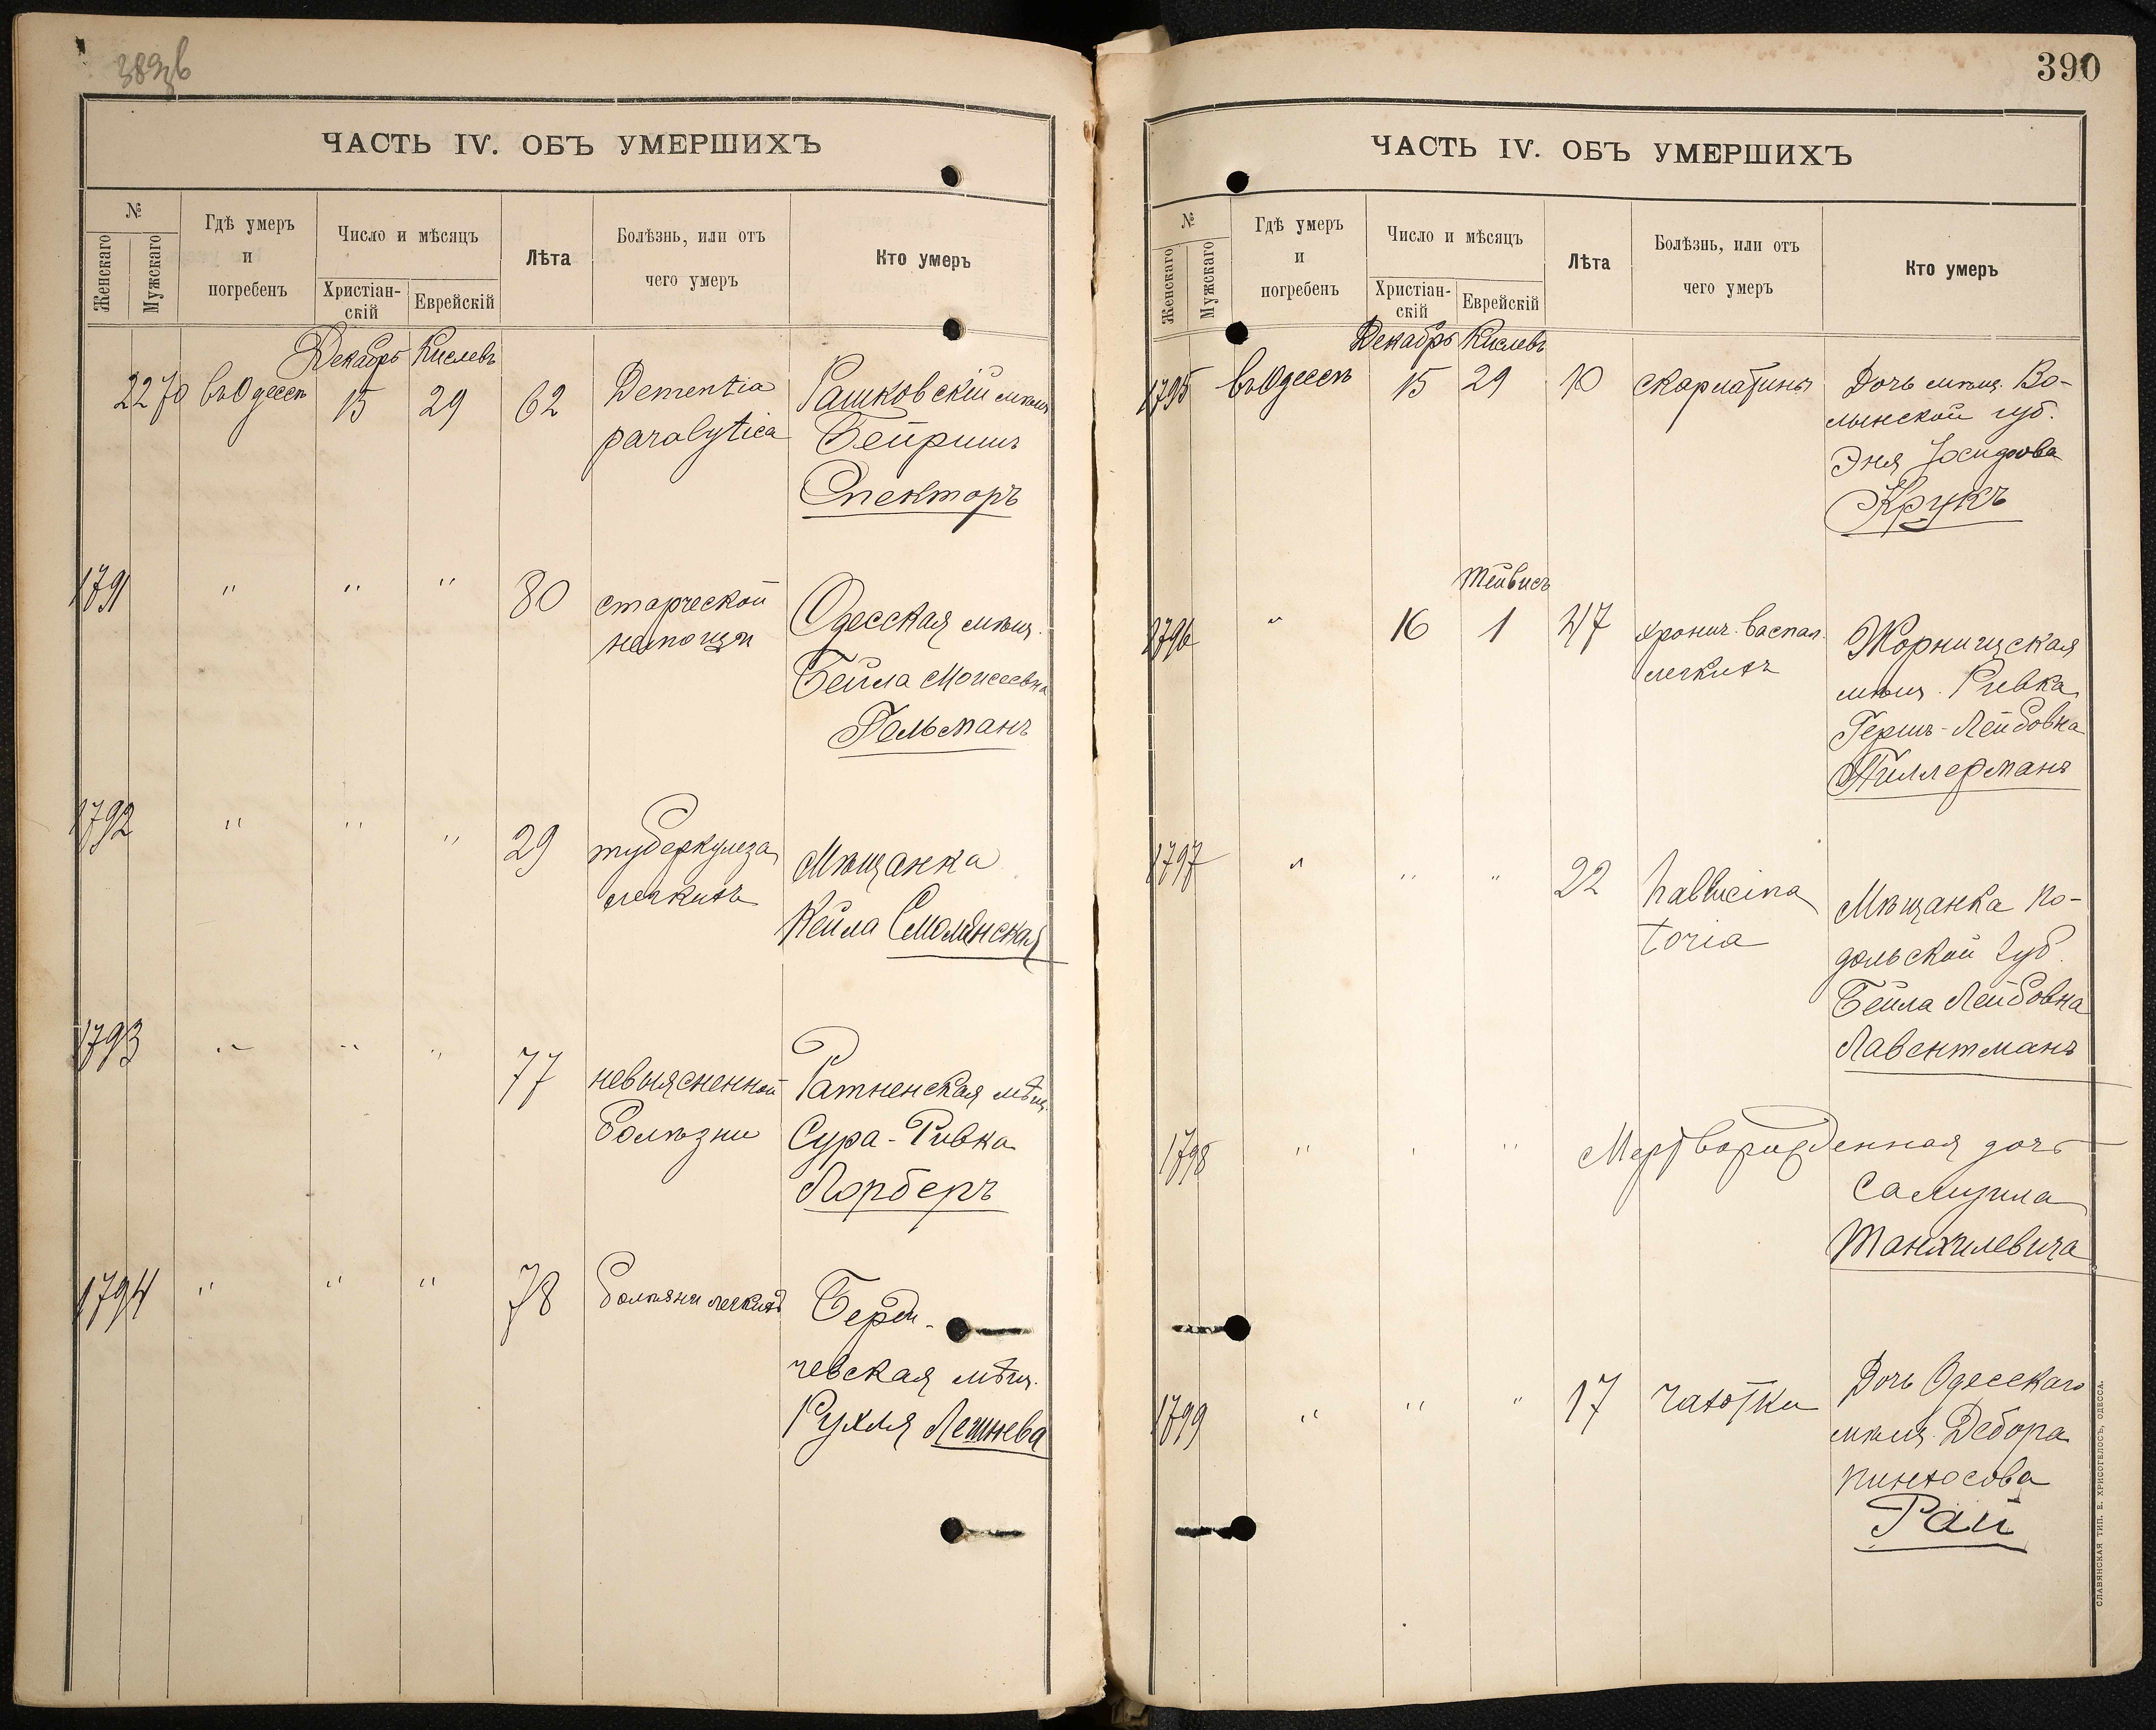 389 в
ЧАСТЬ IV. ОБЪ УМЕРШИХЪ
№
Женскаго
Мужскаго
Гдѣ умеръ
и
погребенъ
Число и мѣсяцъ
Христіан-
скій
Еврейскій
Лѣта
Болѣзнь, или отъ
чего умеръ
Кто умеръ
Декабрь Кислевъ
2270 въ Одессѣ 15 29 62 Dementia Рашковскій мѣщ.
paralytica Бейришъ
Спекторъ
1791 " " " 80 старческой Одесская мѣщ.
немощи Бейла Моисеевна
Гельманъ
1792 " " " 29 туберкулеза Мѣщанка
легкихъ Кейла Смолянская
1793 " " " 77 невыясненной Ратненская мѣщ.
болѣзни Сура-Ривка
Лорберъ
1794 " " " 78 болѣзни легкихъ Берди-
чевская мѣщ.
Рухля Лешнева
390
ЧАСТЬ IV. ОБЪ УМЕРШИХЪ
№
Женскаго
Мужскаго
Гдѣ умеръ
и
погребенъ
Число и мѣсяцъ
Христіан-
скій
Еврейскій
Лѣта
Болѣзнь, или отъ
чего умеръ
Кто умеръ
Декабрь Кислевъ
1795 въ Одессѣ 15 29 10 скарлатины Дочь мѣщ. Во-
лынской губ.
Эня
Крукъ
Тейвисъ
1796 " 16 1 47 хронич. васпал. Жорнищская
легкихъ мѣщ. Ривка
Гершъ-Лейбовна
Тиллерманъ
1797 " " " 22 hallucina Мѣщанка По-
toria дольской губ.
Бейла Лейбовна
Лавентманъ
1798 " " " Мертворожденная дочь
Самуила
Танхилевича
1799 " " " 17 чахотки Дочь Одесскаго
мѣщ. Дебора
Пинхосова
Рай
СЛАВЯНСКАЯ ТИП. Е. ХРИСОГЕЛОСЪ, ОДЕССА.